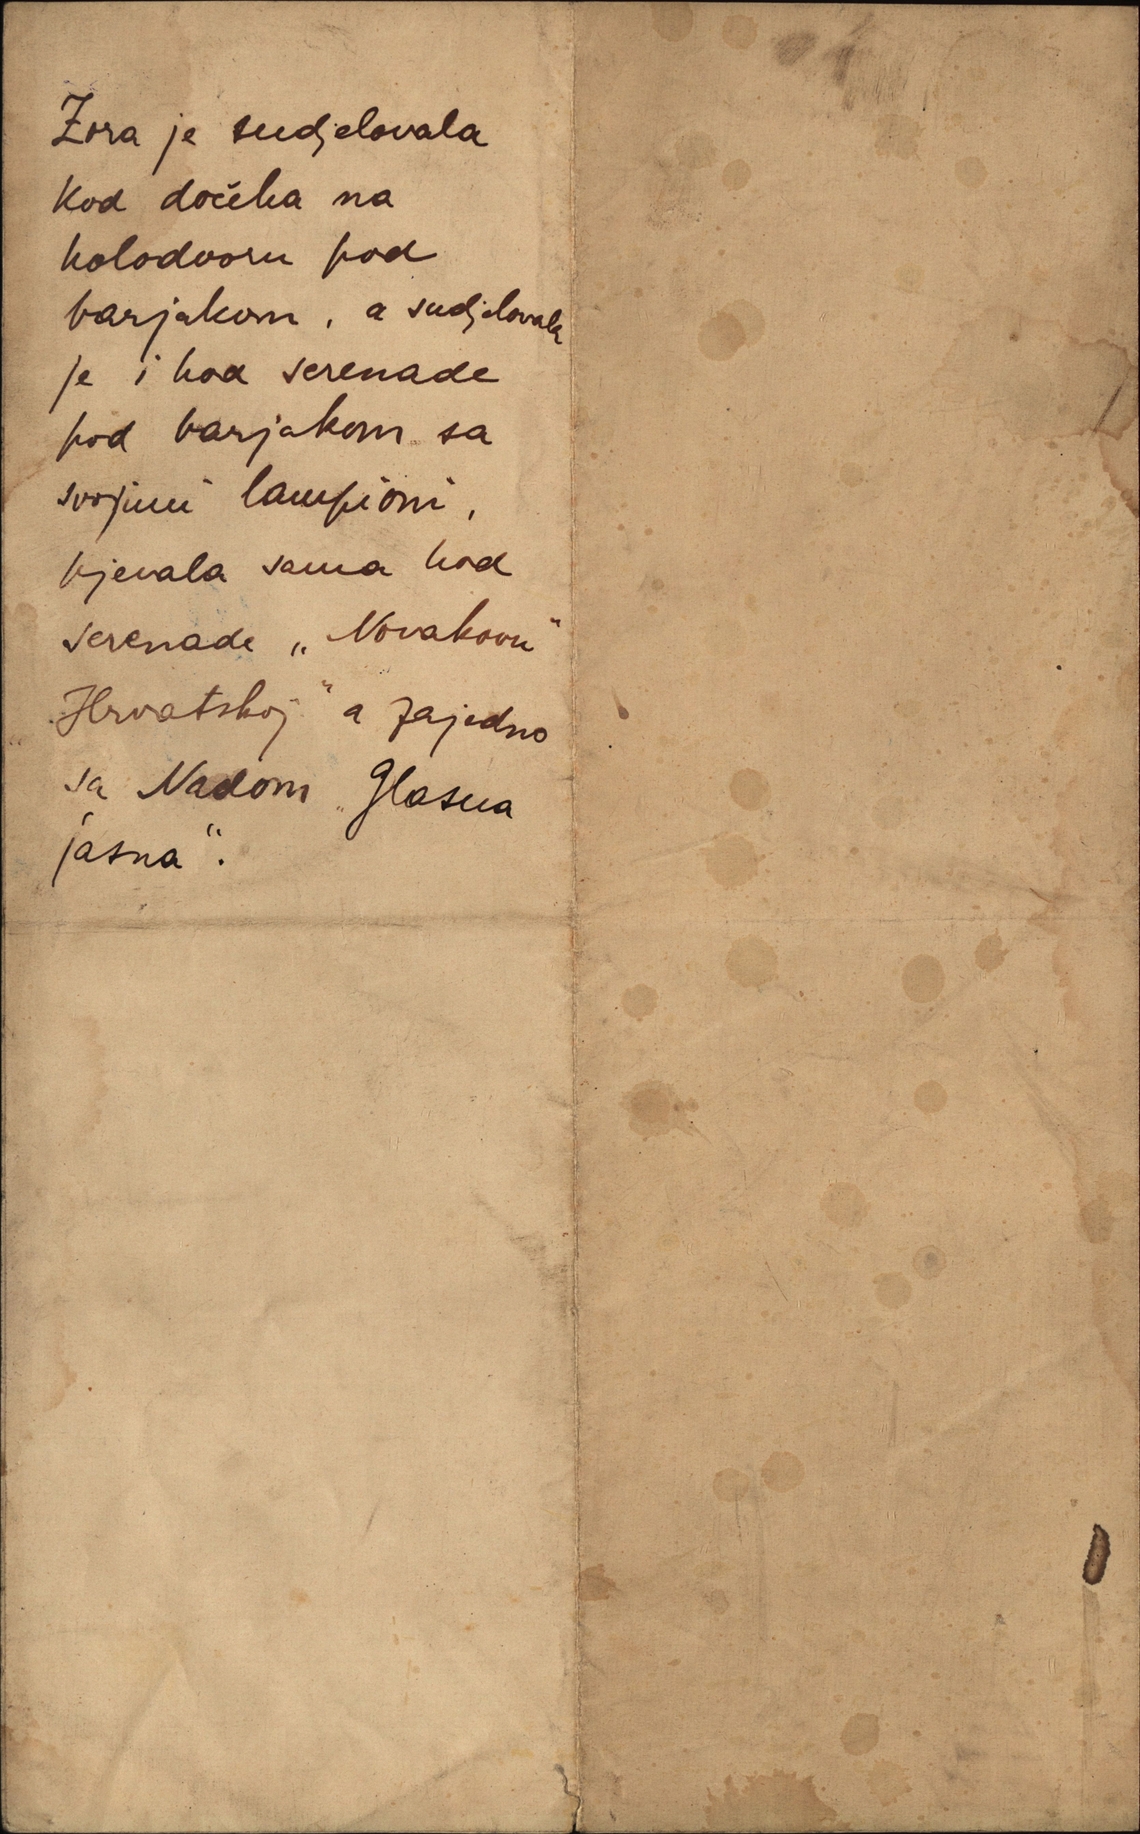 Zora je sudjelovala
kod dočeka na
kolodvoru pod
barjakom, a sudjelovala
je i kod serenade
pod barjakom sa
svojimi lampioni,
pjevala sama kod
serenade „Novakovu"
Hrvatskoj" a zajedno
sa Nadom „Glasna
jasna".